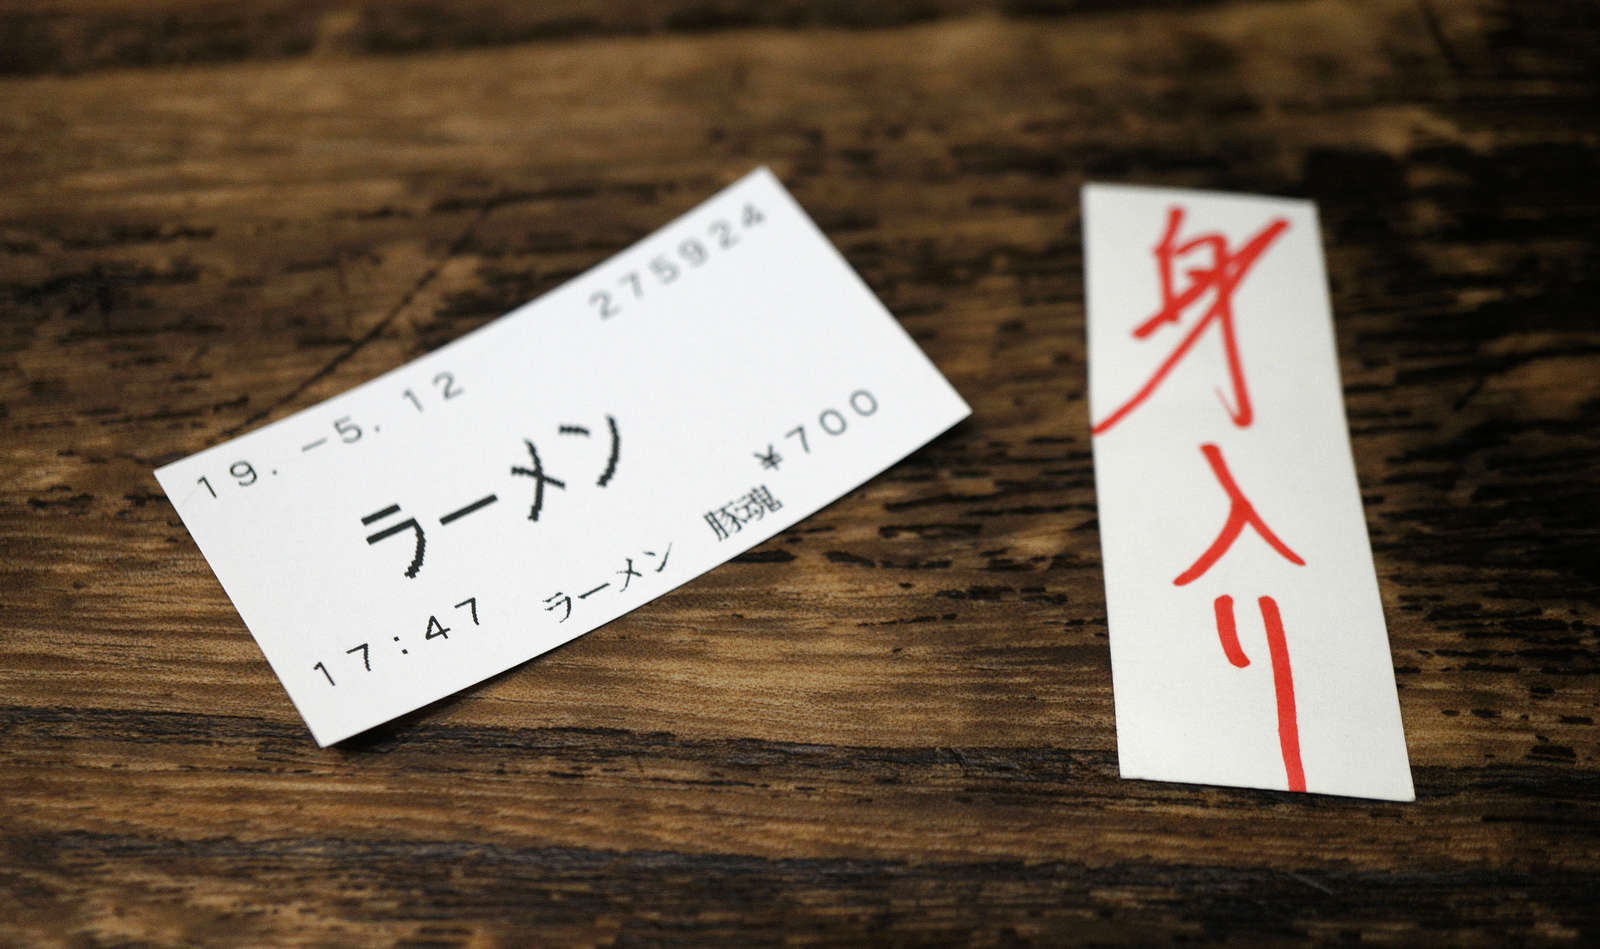 19.-5.12 275924
ラーメン
¥700
17:47 ラーメン 豚魂
身入り